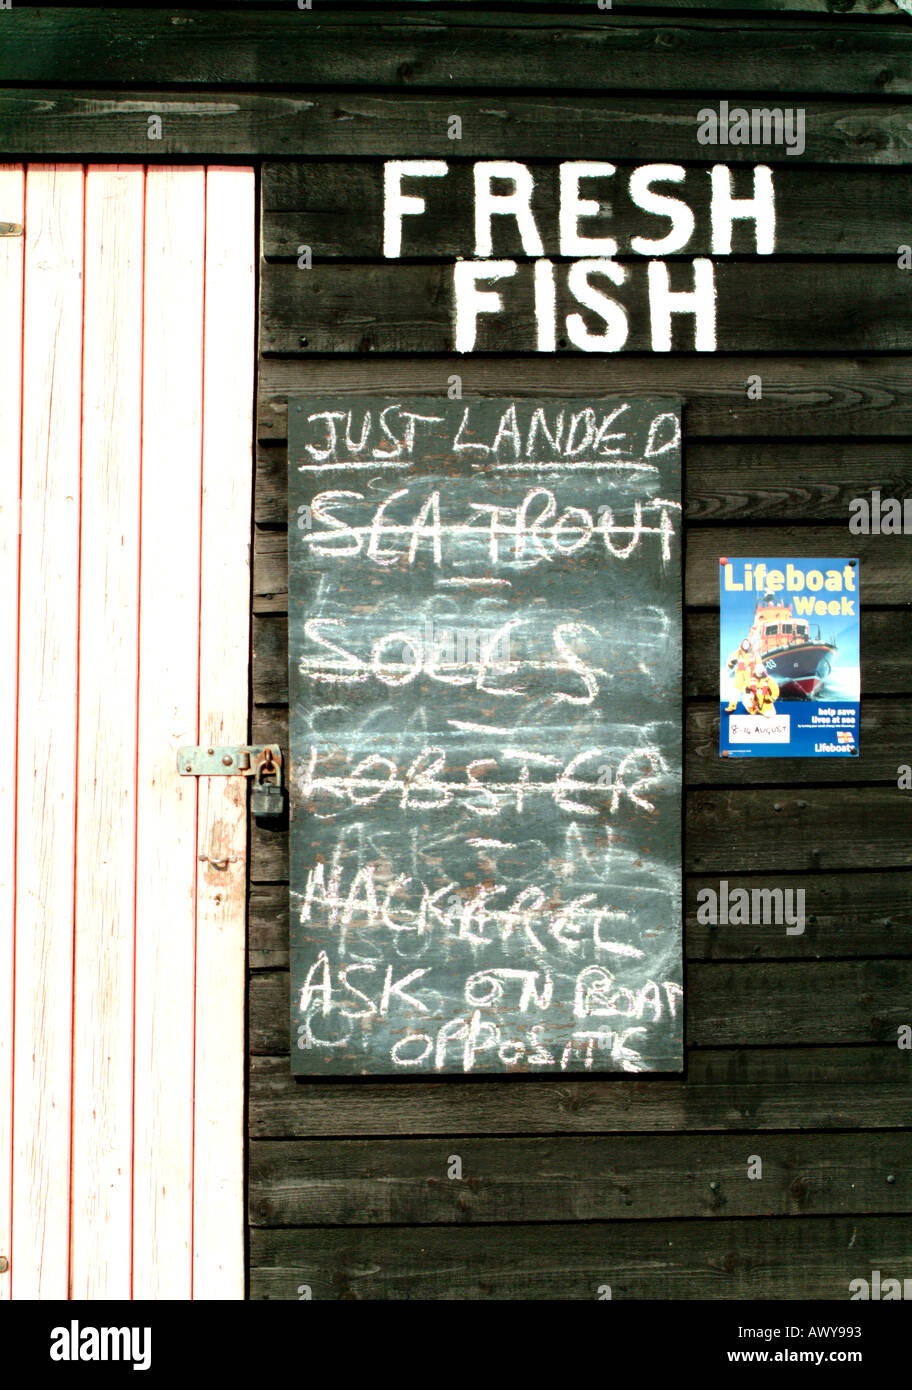 FRESH
FISH
JUST LANDED
SEA TROUT
SOLES
LOBSTER
MACKEREL
ASK ON BOAT
OPPOSITE
Lifeboat
Week
help save
lives at sea
8-14 AUGUST
Lifeboats
alamy
alamy
Image ID: AWY993
www.alamy.com